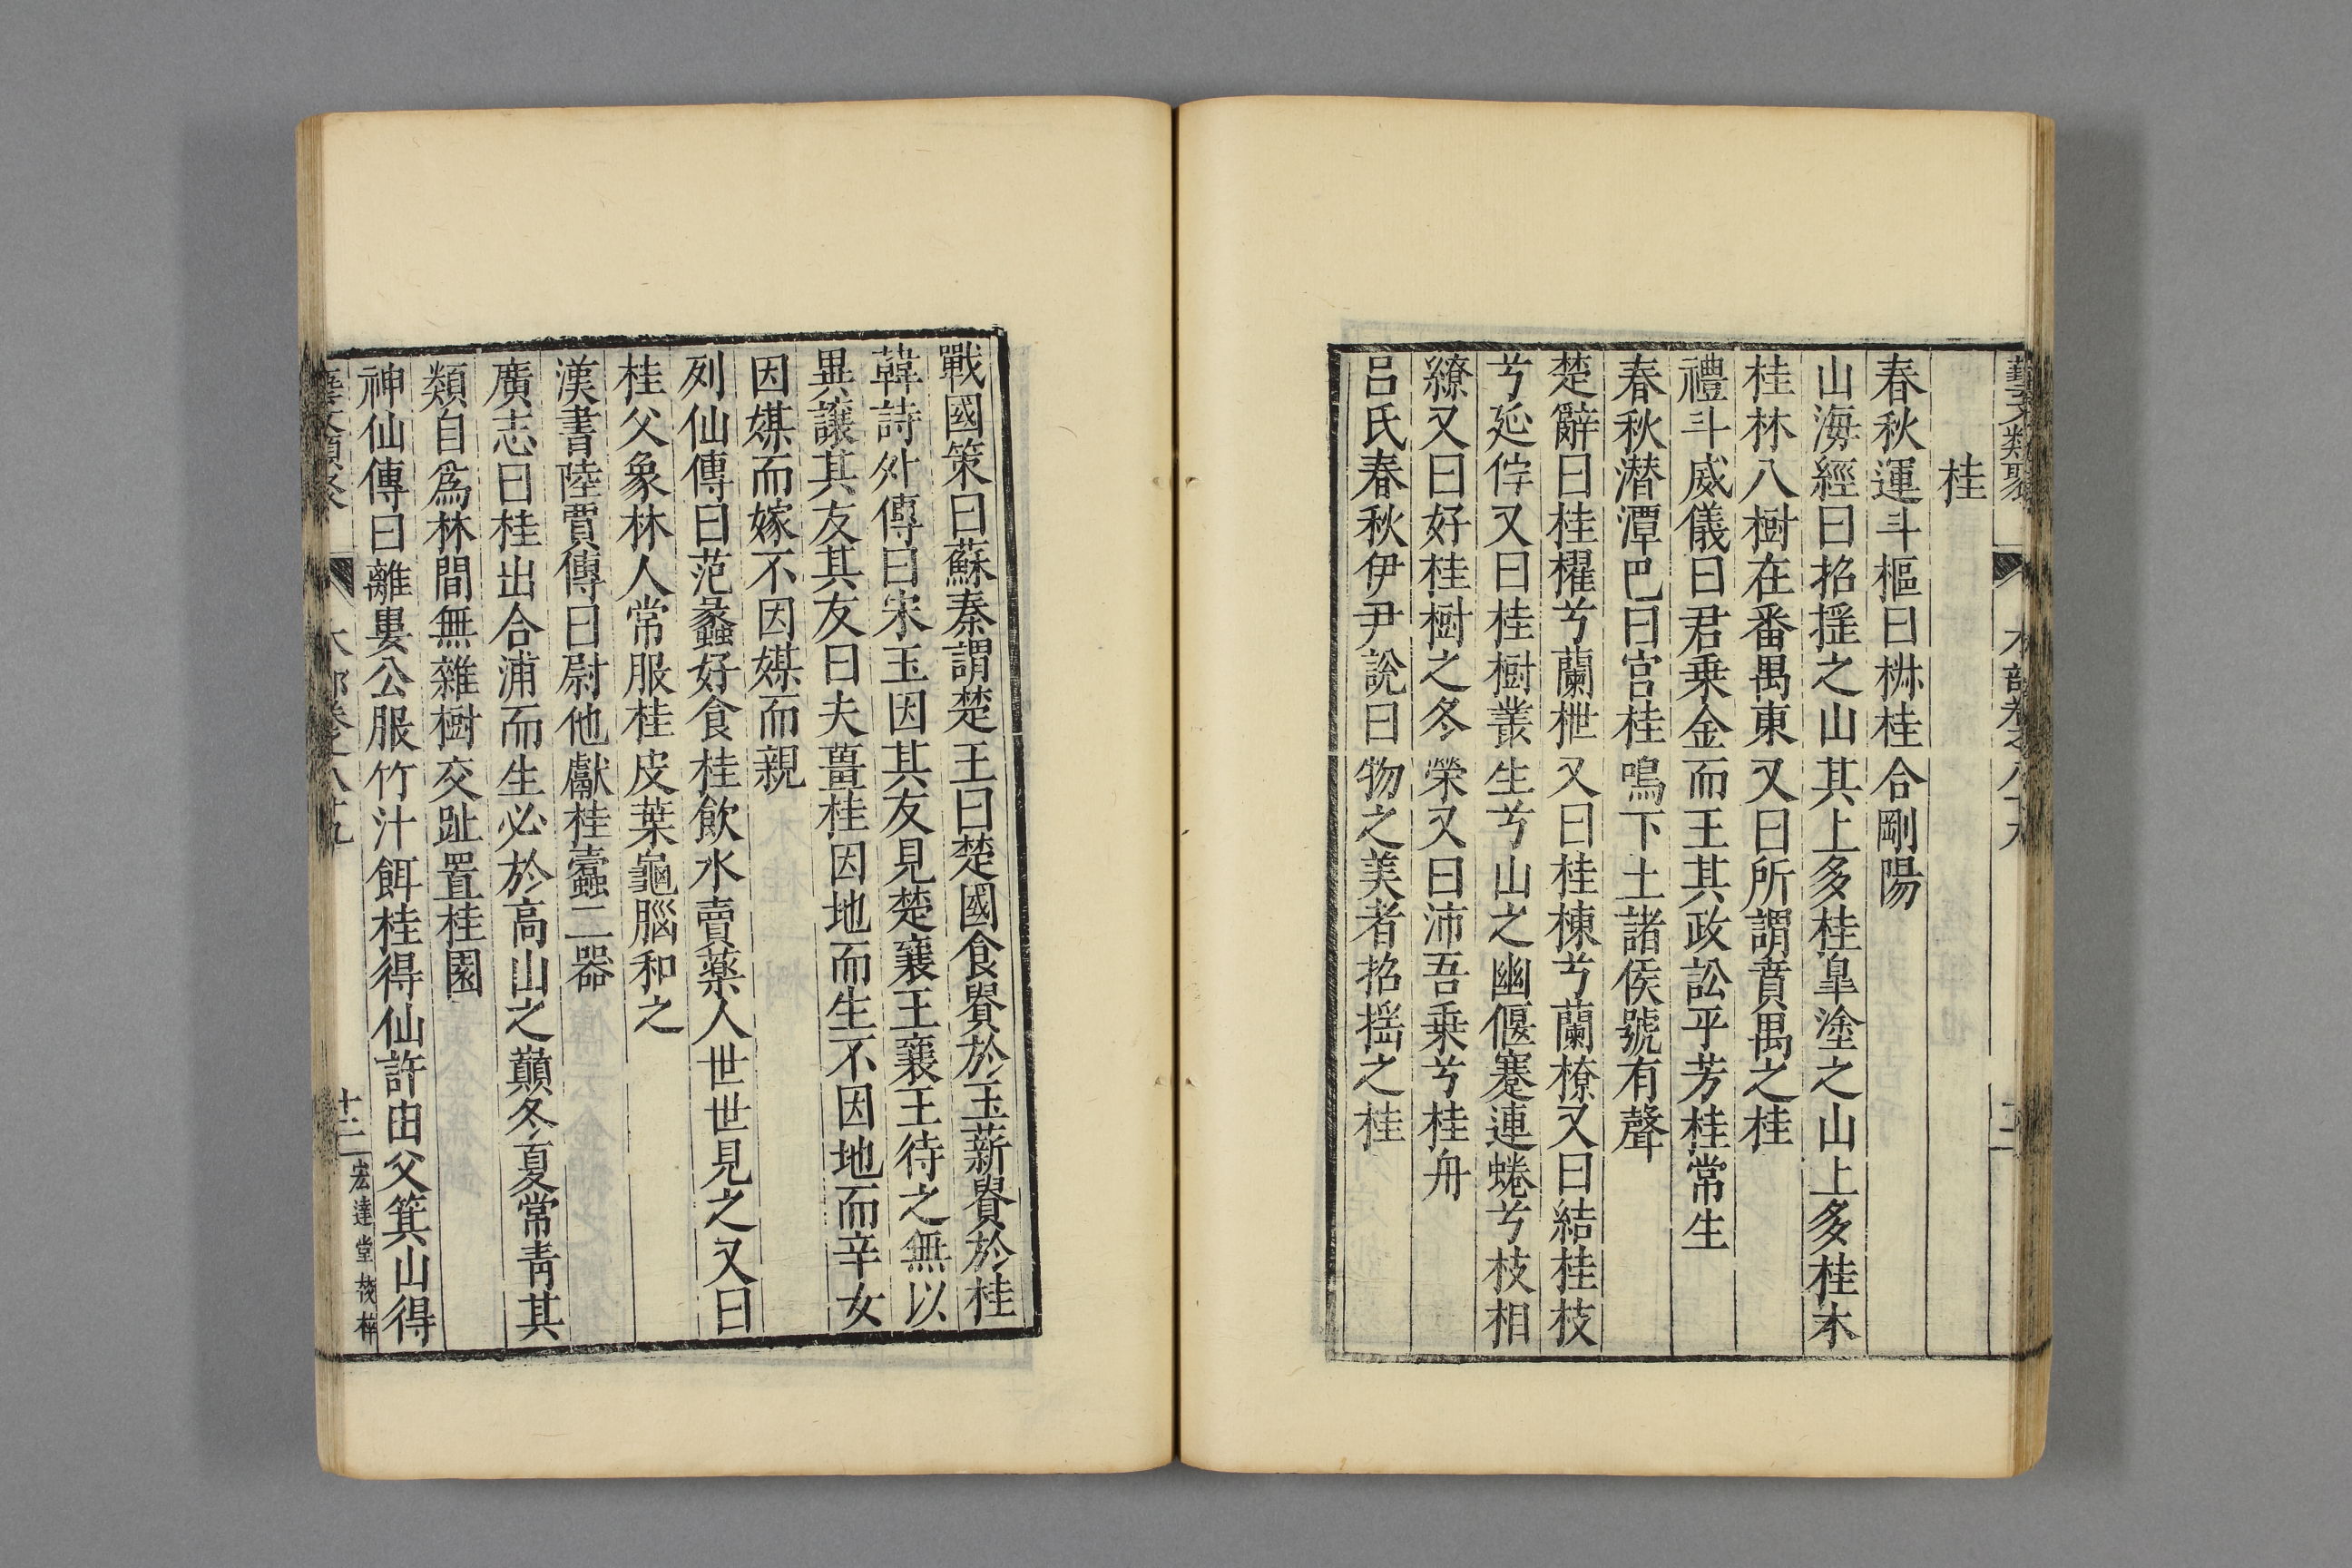 桂
春秋運斗樞曰椒桂合剛陽
山海經曰招揺之山其上多桂臯塗之山上多桂木
桂林八樹在番禺東又曰所謂賁禺之桂
禮斗威儀曰君乗金而王其政訟平芳桂常生
春秋潜潭巴曰宫桂鳴下土諸侯號有聲
楚辭曰桂櫂兮蘭枻又曰桂棟兮蘭橑又曰結桂枝
兮延佇又曰桂樹叢生兮山之幽偃蹇連蜷兮枝相
繚又曰好桂樹之冬榮又曰沛吾乗兮桂舟
吕氏春秋伊尹說曰物之美者招揺之桂
戰國策曰蘇秦謂楚王曰楚國食貴於玉薪貴於桂
韓詩外傳曰宋玉因其友見楚襄王襄王待之無以
異讓其友其友曰夫薑桂因地而生不因地而辛女
因媒而嫁不因媒而親
列仙傳曰范蠡好食桂飲水賣藥人世世見之又曰
桂父象林人常服桂皮葉龜腦和之
漢書陸賈傳曰尉他獻桂蠧二器
廣志曰桂出合浦而生必於高山之巔冬夏常青其
類自爲林間無雜樹交趾置桂園
神仙傳曰離婁公服竹汁餌桂得仙許由父箕山得
宏達堂校梓